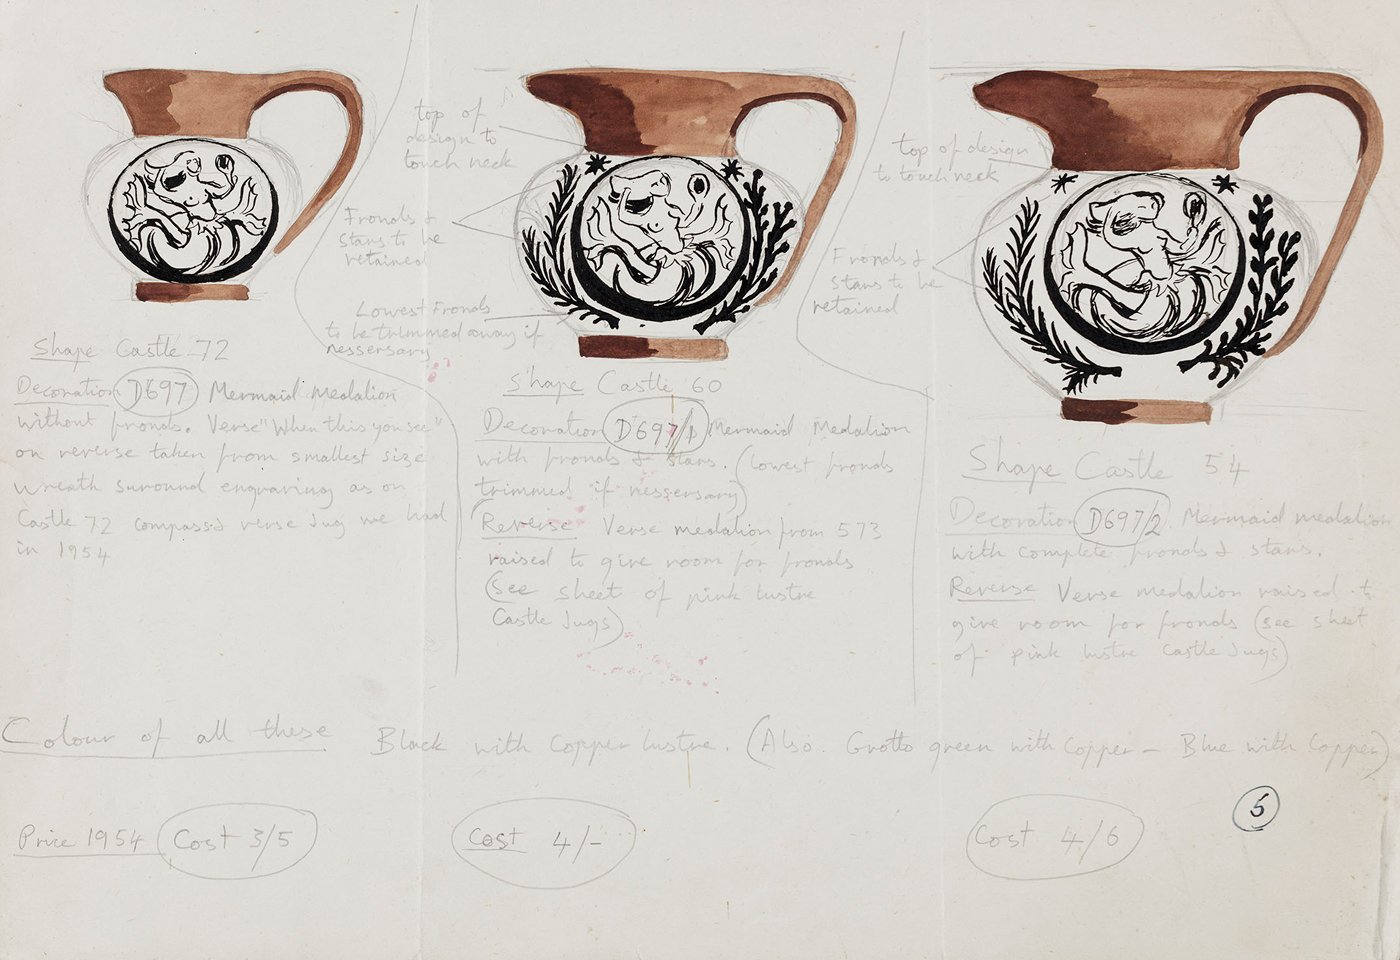 Shape Castle 72
Decoration D697 Mermaid medalion
without fronds. Verse "When this you see"
on reverse taken from smallest size
wreath suround engraving as on
Castle 72 compass & verse Jug we had
in 1954
top of
design to
touch neck
Fronds &
stars to be
retained
Lowest fronds
to be trimmed away if
nessersary
Shape Castle 60
Decoration D697/1 Mermaid Medalion
with fronds & stars. (lowest fronds
trimmed if nessersary)
Reverse Verse medalion from 573
raised to give room for fronds
(see sheet of pink lustre
Castle Jugs)
top of design
to touch neck
Fronds &
stars to be
retained
Shape Castle 54
Decoration D697/2 Mermaid medalion
with complete fronds & stars.
Reverse Verse medalion raised to
give room for fronds (see sheet
of pink lustre Castle Jugs)
Colour of all these Black with Copper lustre. (Also. Grotto green with Copper - Blue with Copper)
Price 1954 Cost 3/5 Cost 4/- Cost 4/6
5